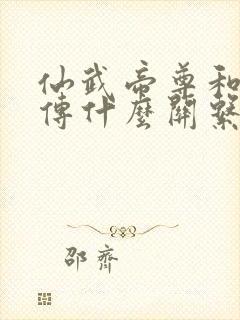 仙武帝尊和
傳什麼關繫
邵齊